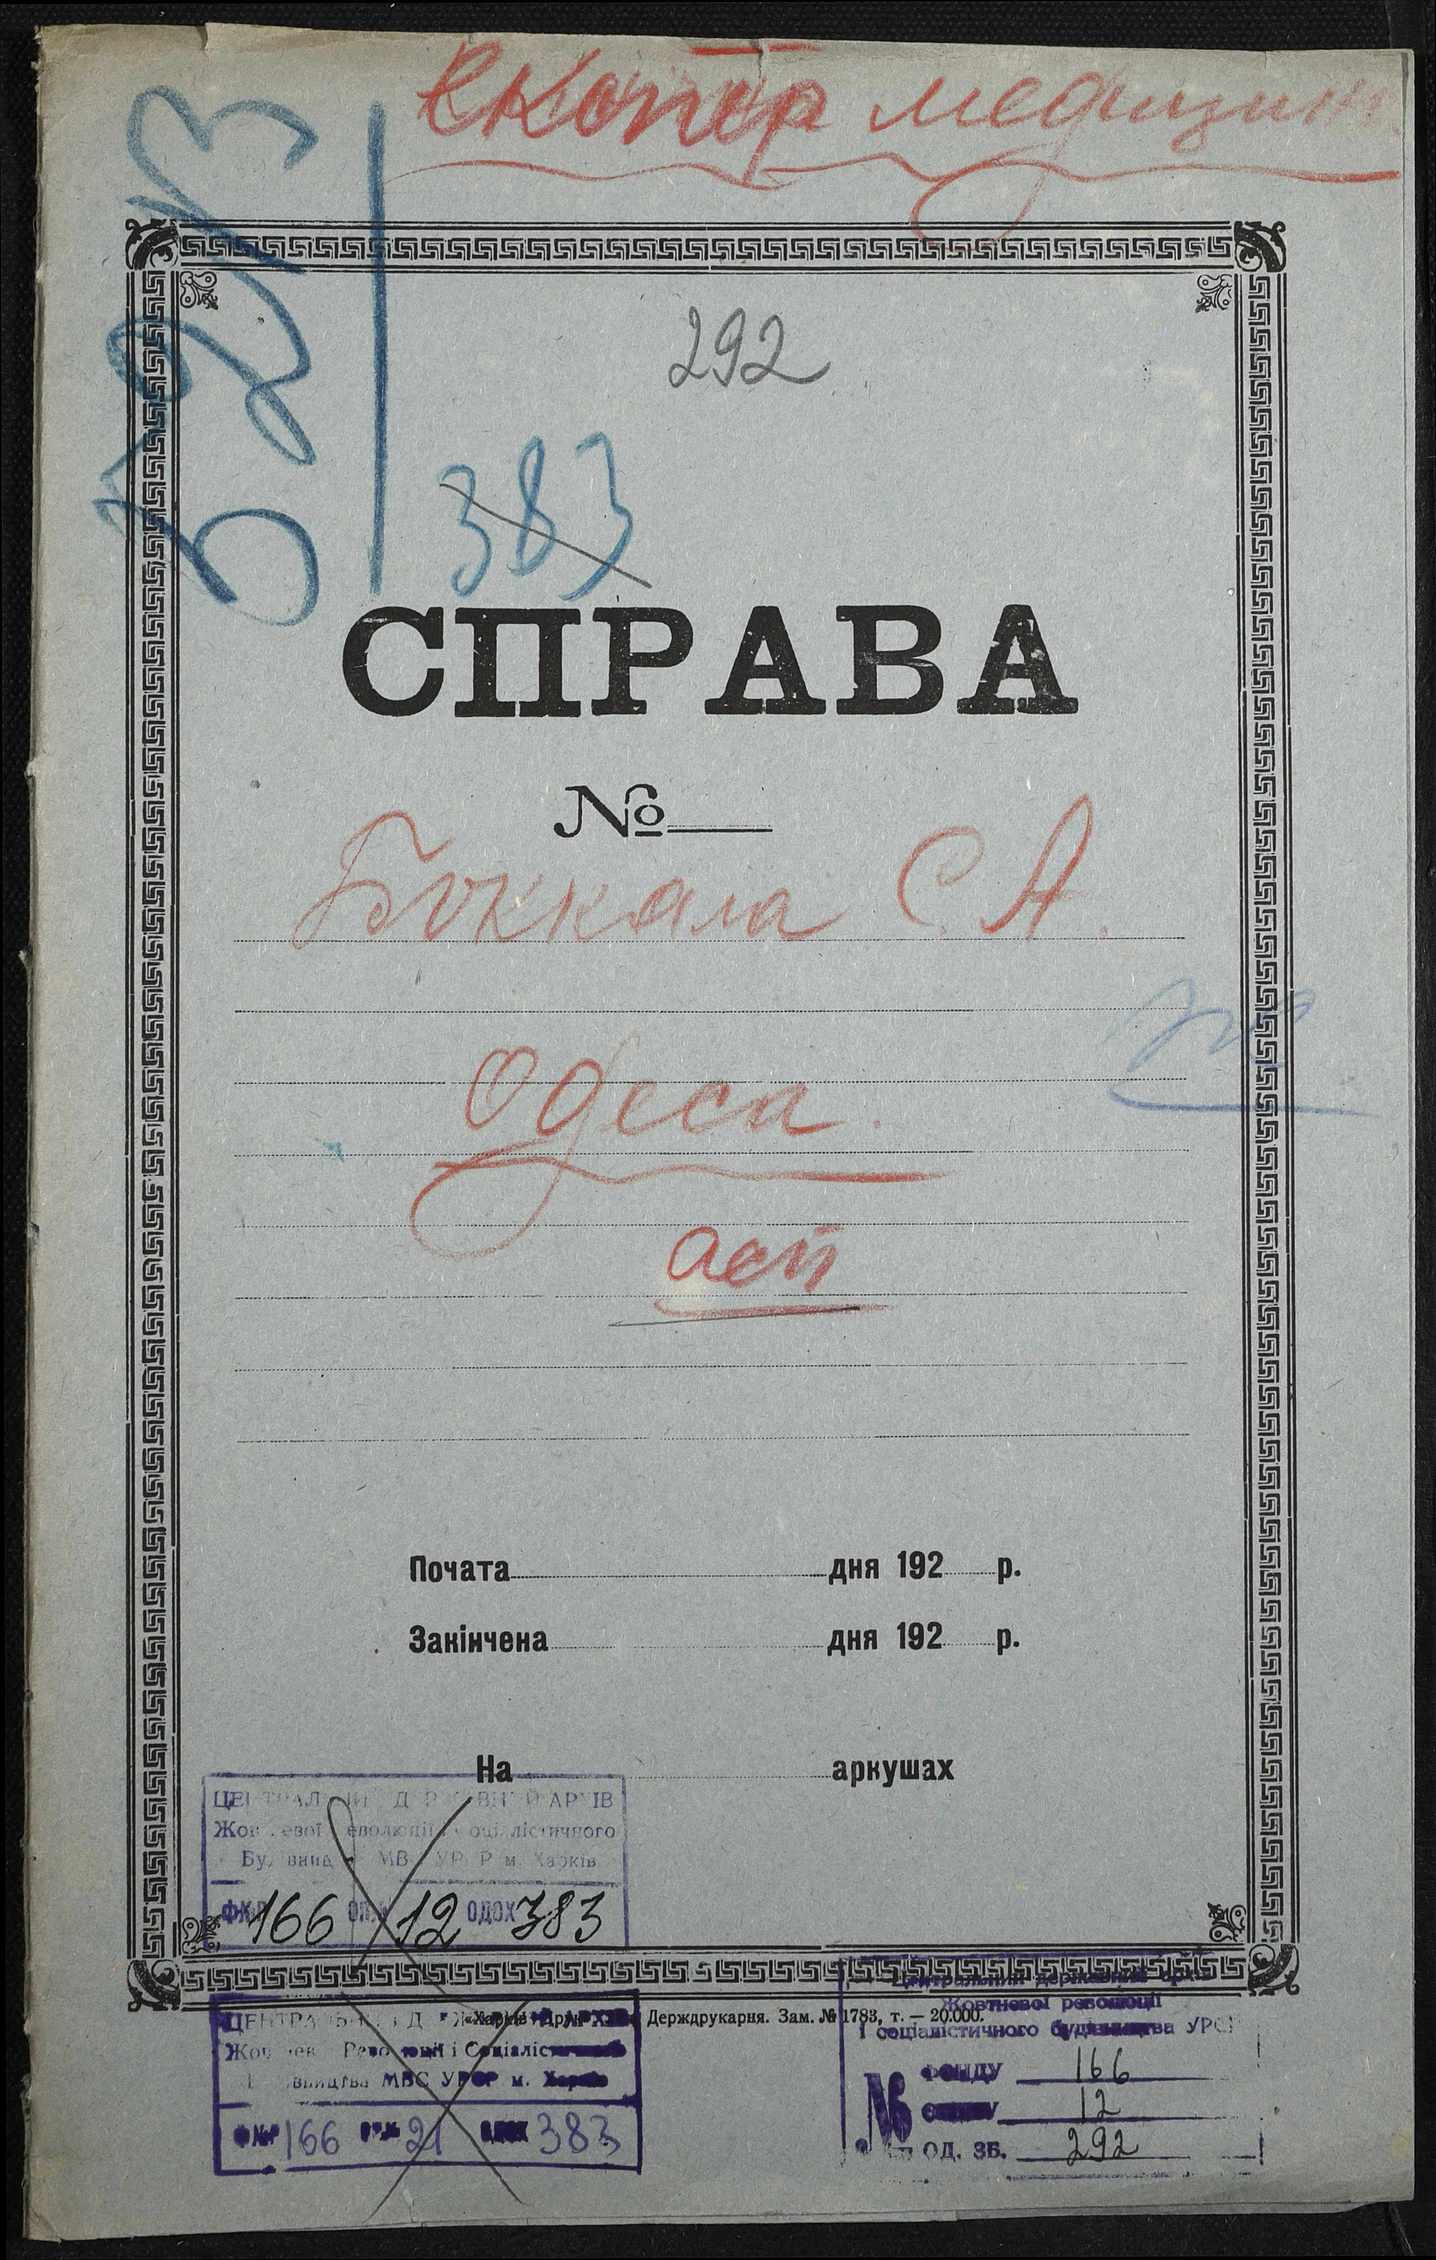 медицин
292
383
СПРАВА
№
Буккала С. А.
Одеса.
асп
Почата дня 192 р.
Закінчена дня 192 р.
На аркушах
ЦЕНТРАЛЬНИЙ ДЕРЖАВНИЙ АРХІВ
Жовтневої Революції і Соціалістичного
Будівництва МВС УРСР м. Харків
Ф№ 166 ОП.№ 12 ОДОХ 383
Держдрукарня. Зам. № 1783, т. — 20.000.
ЦЕНТРАЛЬНИЙ ДЕРЖАВНИЙ АРХІВ
Жовтневої Революції і Соціалістичного
Будівництва МВС УРСР м. Харків
Ф№ 166 ОП.№ 21 ОДОХ 383
Центральний державний архів
Жовтневої революції
і соціалістичного будівництва УРСР
№ ФОНДУ 166
12
ОД. ЗБ. 292